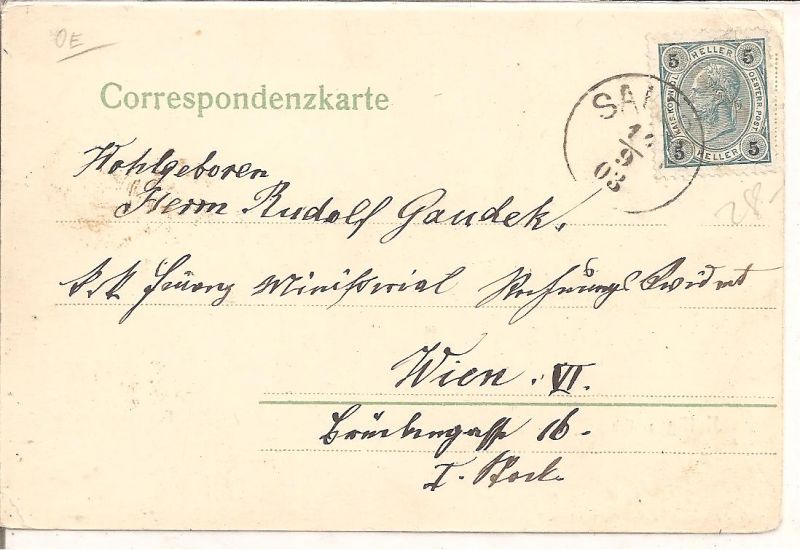 OE
Correspondenzkarte
5 HELLER 5
KAIS. KOENIGL. OESTERR. POST
5 HELLER 5
SA
9
03
28.-
Wohlgeboren
Herrn Rudolf Gaudek,
k. k. Finanz Ministerial Rechnungs Revident
Wien. VI.
Brückengasse 16.
I. Stock.